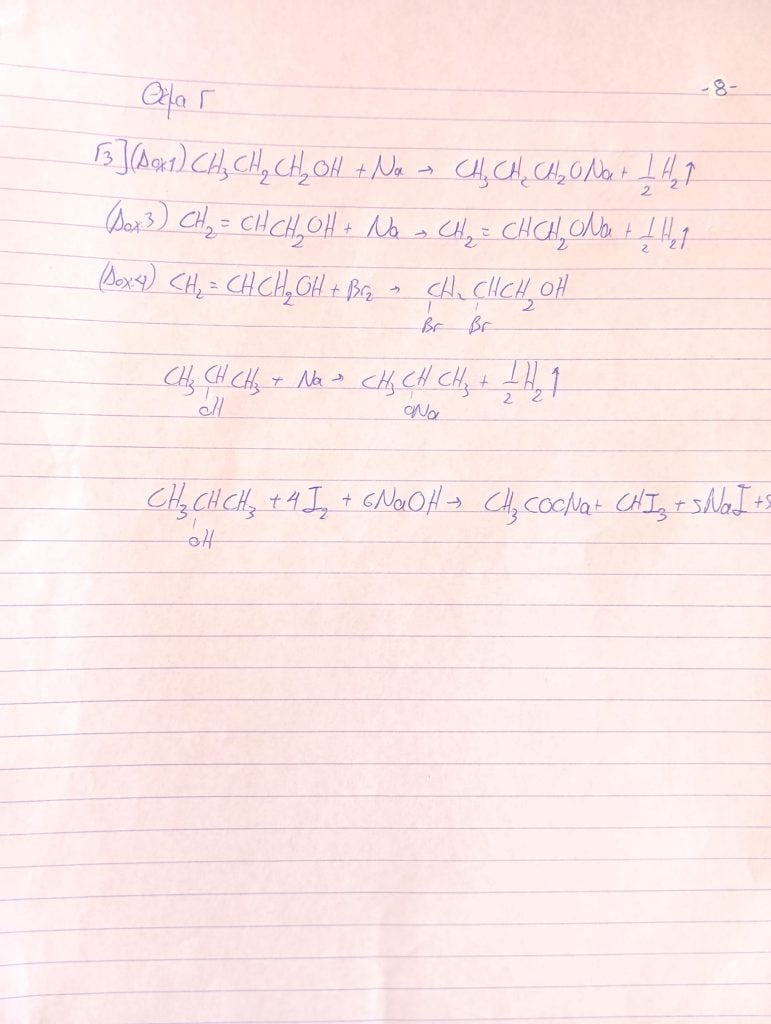 Θέμα Γ
-8-
Γ3](Δοχ1) CH₃CH₂CH₂OH + Na → CH₃CH₂CH₂ONa + 1/2 H₂↑
(Δοχ3) CH₂ = CHCH₂OH + Na → CH₂ = CHCH₂ONa + 1/2 H₂↑
(Δοχ4) CH₂ = CHCH₂OH + Br₂ → CH₂ CHCH₂OH
Br Br
CH₃CHCH₃ + Na → CH₃CHCH₃ + 1/2 H₂↑
OH ONa
CH₃CHCH₃ + 4I₂ + 6NaOH → CH₃COONa + CHI₃ + 5NaI + 5
OH